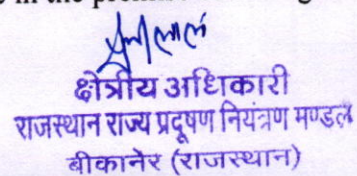 in the
क्षेत्रीय अधिकारी
राजस्थान राज्य प्रदूषण नियंत्रण मण्डल
बीकानेर (राजस्थान)